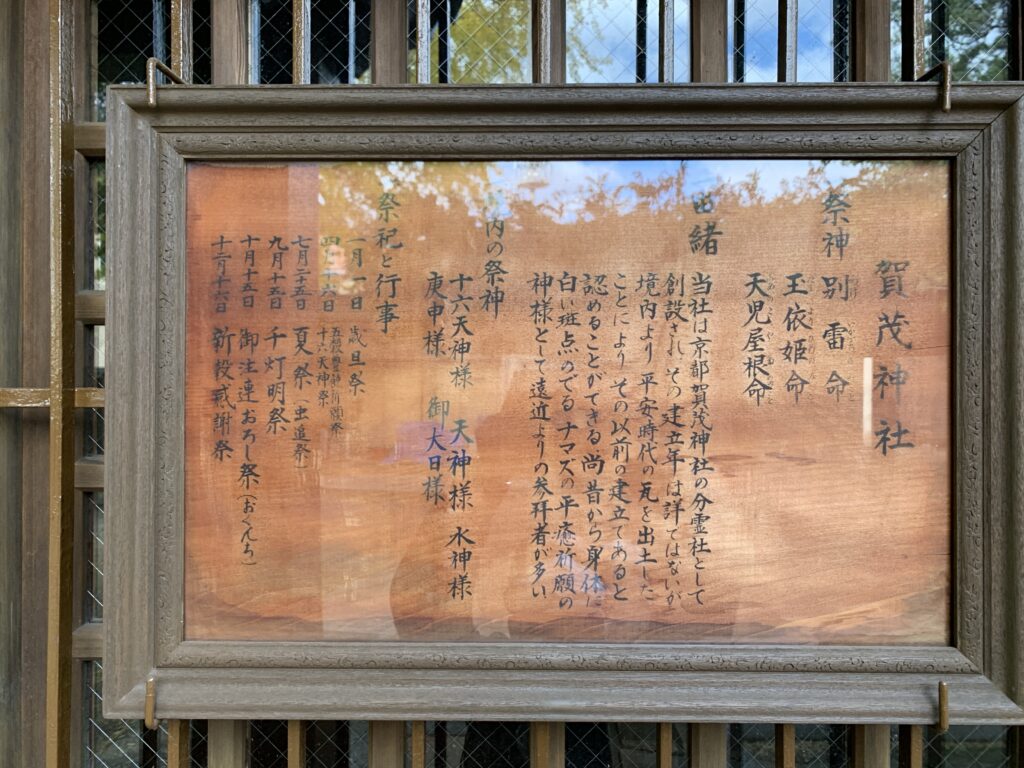 賀茂神社
祭神 別雷命
玉依姫命
天児屋根命
由緒 当社は京都賀茂神社の分霊社として
創設され、その建立年は詳てはないが
境内より平安時代の瓦を出土した
ことにより その以前の建立であると
認めることができる尚昔から身体に
白い斑点のでるナマズの平癒祈願の
神様として遠近よりの参拝者が多い
内の祭神
十六天神様 天神様 水神様
庚申様 御大日様
祭祀と行事
一月一日 歳旦祭
四月十六日 祈願祭
十六天神祭
七月二十五日 夏祭(虫追祭)
九月十五日 千灯明祭
十月十五日 御注連おろし祭(おくんち)
十二月十六日 新穀感謝祭